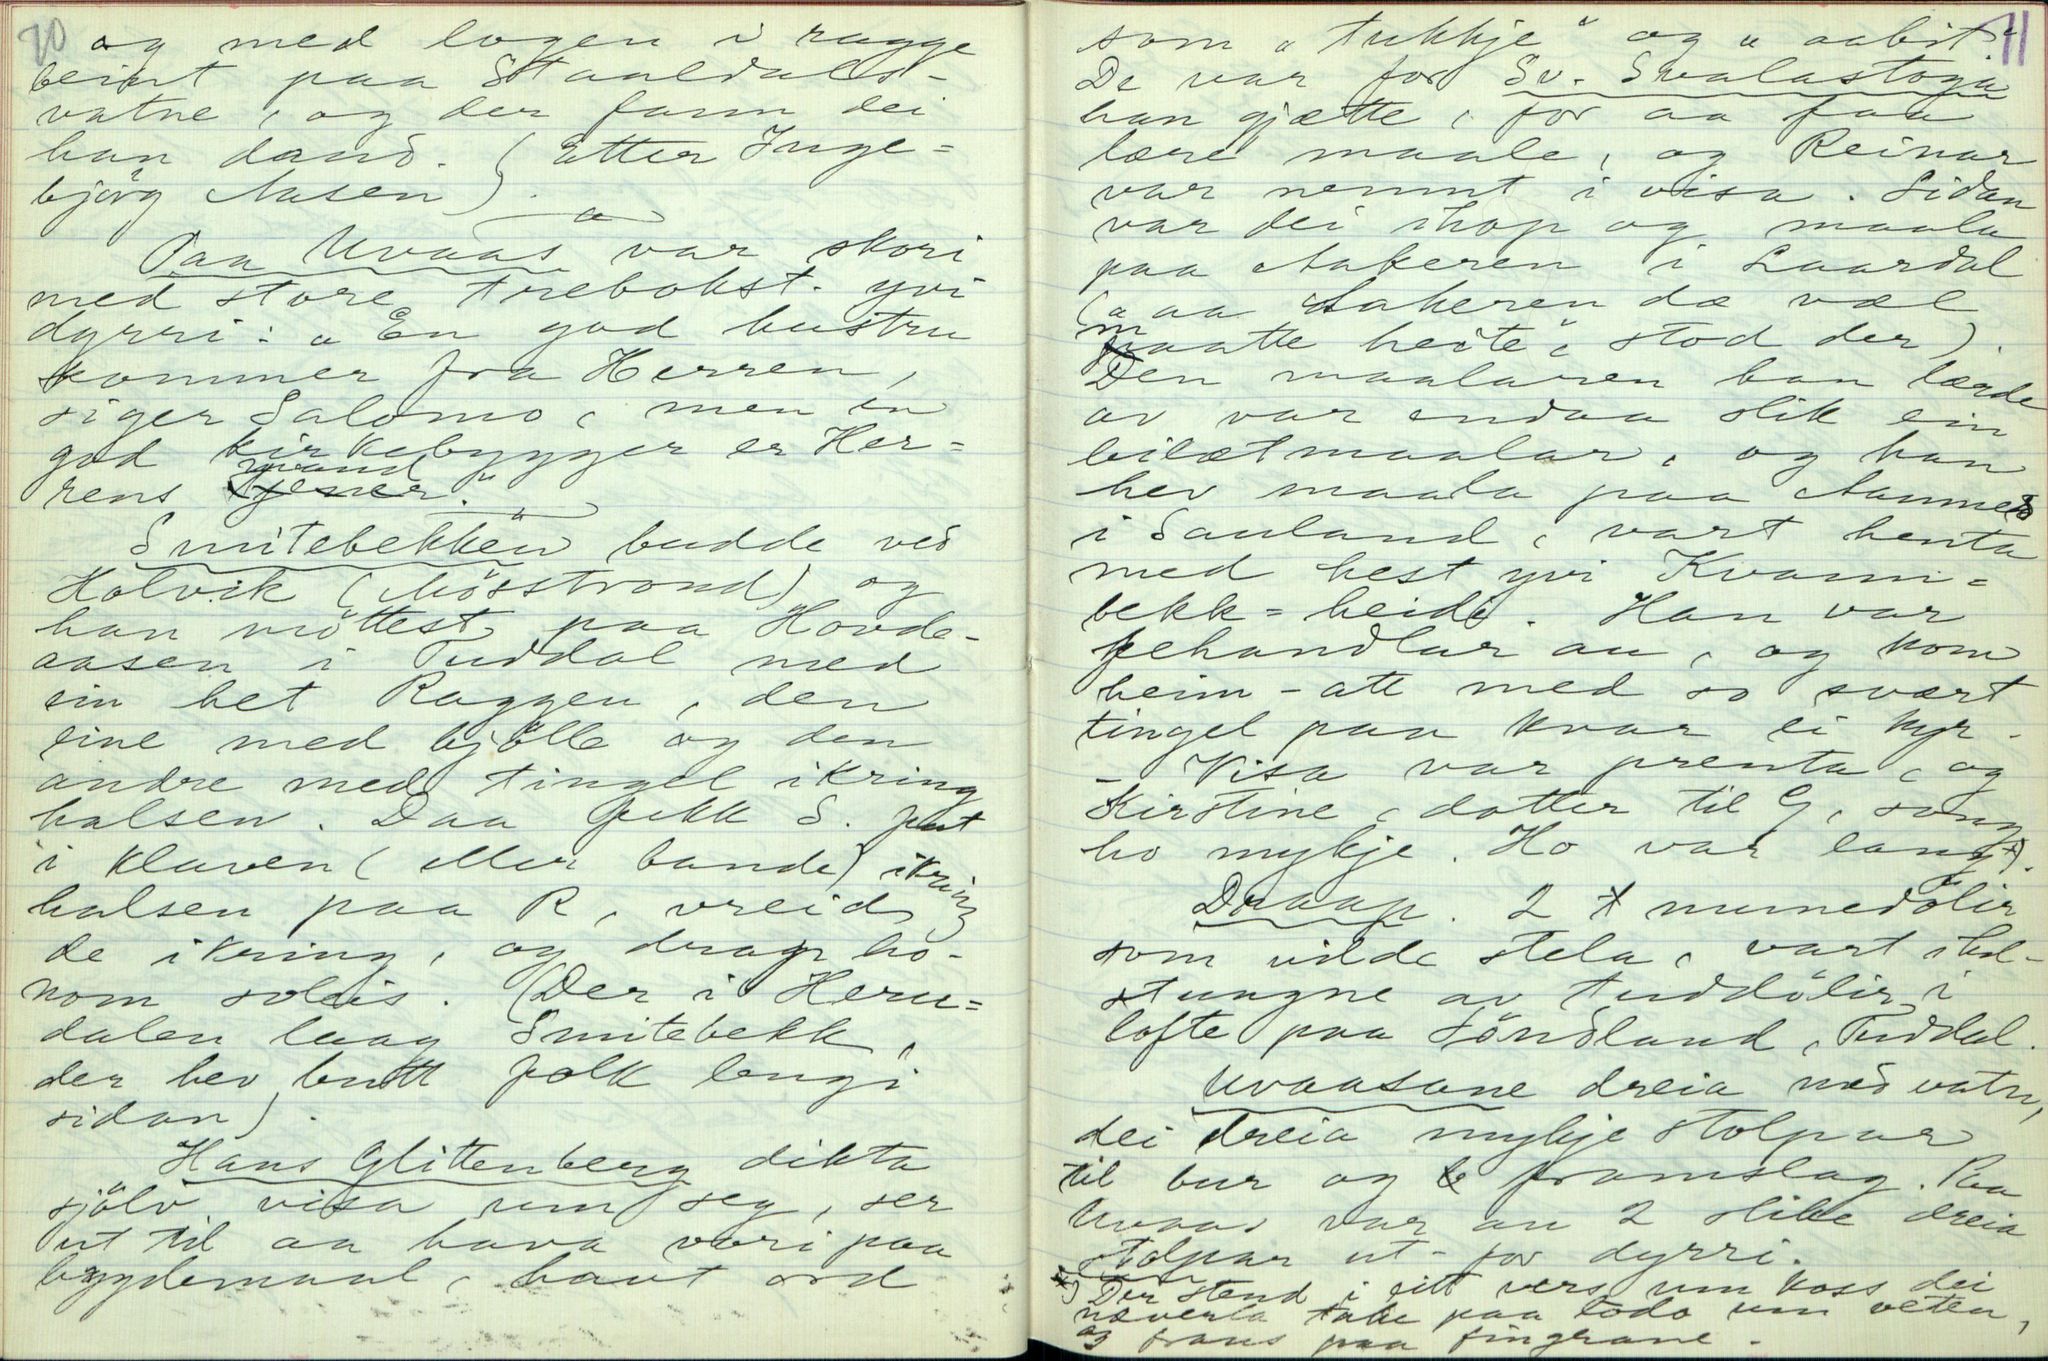 70
og med logen i ragge
beint paa Staaldals-
vatne, og der fann dei
han daud. (etter Inge=
björg Aasen).
Paa Uvaas var skori
med store trebokst. yvi
dyrri: "En god hustru
kommer fra Herren,
siger Salomo, men en
god kirkebygger er Her=
rens mand."
Smitebekken budde ved
Holvik (Mösstrond) og
han möttest paa Hovde-
aasen i Tuddal med
ein het Raggen, den
eine med bjölle og den
andre med tingel ikring
halsen. Daa fekk S. put
i klaven (eller bande) ikring
halsen paa R, vreid
de ikring, og drap ho-
nom soleis. (Der i Heru=
dalen laag Smitebekk,
der hev butt folk lengi
sidan).
Hans Glittenberg dikta
sjölv visa um seg, ser
ut til aa hava vori paa
bygdemaal, havt ord
11
som "tukkje" og "aabit".
De var for Sv. Svalastoga
han gjætte, for aa faa
lære maale, og Reinar
var nemnt i visa. Sidan
var dei ihop og maala
paa Aakeren i Laardal
("aa Aakeren dæ væl
maatte heite", stod der).
Den maalaren han lærde
av var endaa slik ein
bilætmaalar, og han
hev maala paa Aamnes
i Sauland, vart henta
med hest yvi Kvann=
bekk=heidi. Han var
fehandlar au, og kom
heim-att med so svært
tingel paa kvar ei kyr.
- Visa var prenta, og
Kirstine, dotter til G, song
ho mykje. Ho var lang x).
Draap. 2 numedölir
som vilde stela, vart ihel-
stungne av tuddölir i
lofte paa Söndland, Tuddal.
Uvaasane dreia med vatn,
dei dreia mykje stolpar
til bur og framslag. Paa
Uvaas var au 2 slike dreia
stolpar ut-for dyrri.
x) Der stend i eitt vers um koss dei
næverla take paa Lodo um veten,
og fraus paa fingrane.